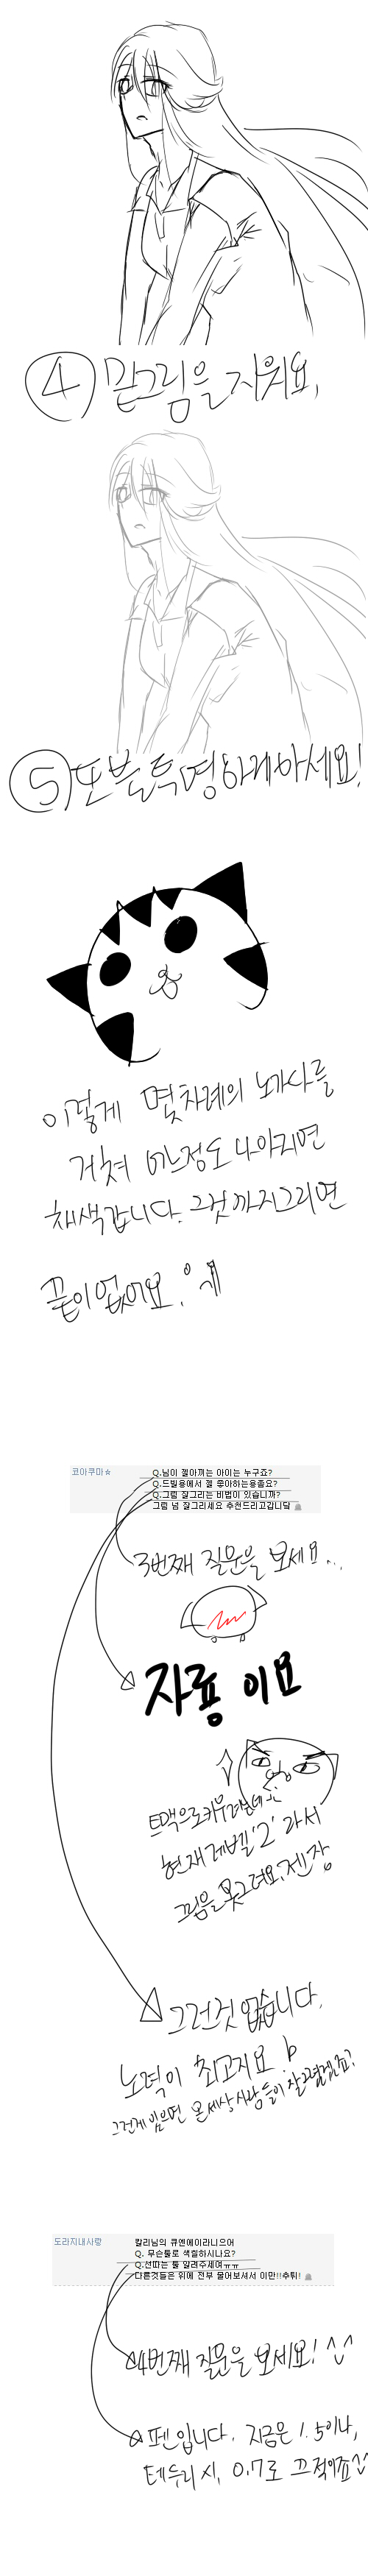 ④ 밑그림을 지워요,
⑤ 또 불투명하게하세요!
이렇게 몇차례의 노가다를
거쳐 어느정도 나아지면
채색갑니다. 그것까지그리면
끝이없어요.
코아쿠마☆
Q.님이 젤아끼는 아이는 누구죠?
Q.드빌용에서 젤 좋아하는용좀요?
Q.그림 잘그리는 비법이 있습니까?
그림 넘 잘그리세요 추천드리고갑니닼
3번째 질문을 보세요...
자룡 이요
현재레벨'2'라서
끄읍을 못그려요.젠장
그런것 없습니다.
노력이 최고지요 b
그런게있으면 온세상사람들이 잘그렸겠죠?
도라지내사랑
칼리님의 큐엔에이라니으어
Q. 무슨툴로 색칠하시나요?
Q.선따는 툴 알려주세여ㅠㅠ
다른것들은 위에 전부 물어보셔서 이만!!추튀!
4번째 질문을 보세요! ^^
펜입니다. 지금은 1.5이나,
테두리시, 0.7로 끄적이죠^^